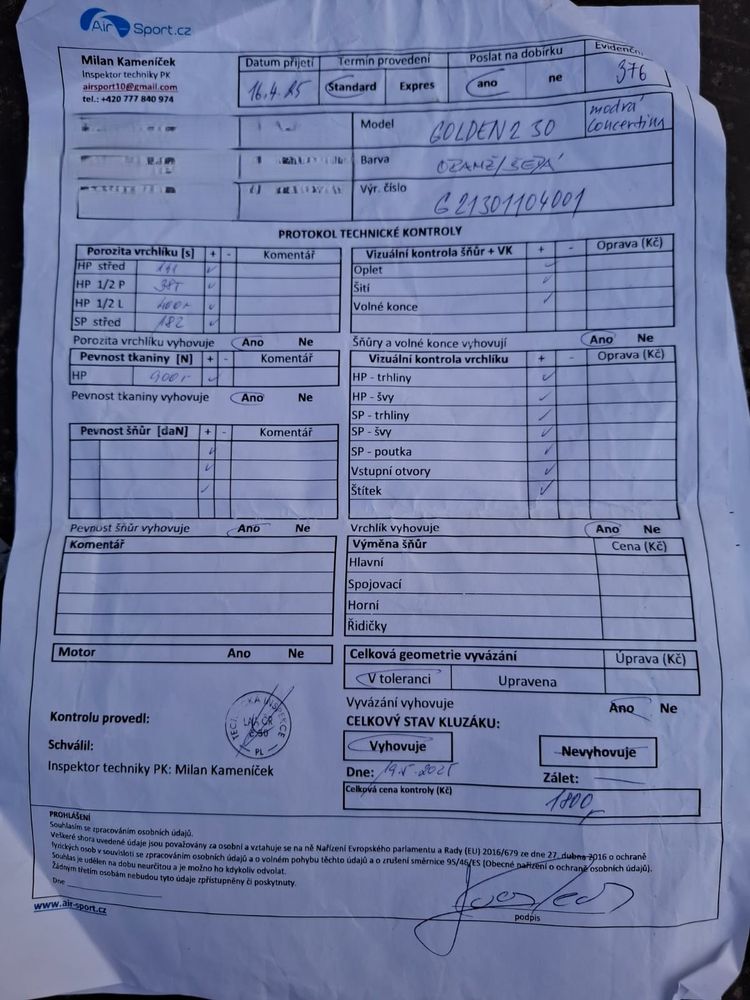 Air - Sport.cz
Milan Kameníček
Inspektor techniky PK
airsport10@gmail.com
tel.: +420 777 840 974
Datum přijetí
16.4.25
Termín provedení
Standard Expres
Poslat na dobírku
ano ne
Evidenčn
376
Model GOLDEN 2 30
modrá concertina
Barva ORANŽ/ŠEDÁ
Výr. číslo G21301104001
PROTOKOL TECHNICKÉ KONTROLY
Porozita vrchlíku [s] + - Komentář
HP střed
HP 1/2 P
HP 1/2 L
SP střed 182
Porozita vrchlíku vyhovuje Ano Ne
Pevnost tkaniny [N] + - Komentář
HP
Pevnost tkaniny vyhovuje Ano Ne
Pevnost šňůr [daN] + - Komentář
Pevnost šňůr vyhovuje Ano Ne
Komentář
Motor Ano Ne
Vizuální kontrola šňůr + VK + - Oprava (Kč)
Oplet
Šití
Volné konce
Šňůry a volné konce vyhovují Ano Ne
Vizuální kontrola vrchlíku + - Oprava (Kč)
HP - trhliny
HP - švy
SP - trhliny
SP - švy
SP - poutka
Vstupní otvory
Štítek
Vrchlík vyhovuje Ano Ne
Výměna šňůr Cena (Kč)
Hlavní
Spojovací
Horní
Řidičky
Celková geometrie vyvázání Úprava (Kč)
V toleranci Upravena
Vyvázání vyhovuje Ano Ne
CELKOVÝ STAV KLUZÁKU:
Vyhovuje Nevyhovuje
Dne: 19.5.2025 Zálet:
Celková cena kontroly (Kč) 1800
Kontrolu provedl:
LAA ČR
PL
Schválil:
Inspektor techniky PK: Milan Kameníček
PROHLÁŠENÍ
Souhlasím se zpracováním osobních údajů.
Veškeré shora uvedené údaje jsou považovány za osobní a vztahuje se na ně Nařízení Evropského parlamentu a Rady (EU) 2016/679 ze dne 27. dubna 2016 o ochraně
fyzických osob v souvislosti se zpracováním osobních údajů a o volném pohybu těchto údajů a o zrušení směrnice 95/46/ES (Obecné nařízení o ochraně osobních údajů).
Souhlas je udělen na dobu neurčitou a je možno ho kdykoliv odvolat.
Žádným třetím osobám nebudou tyto údaje zpřístupněny či poskytnuty.
Dne
podpis
www.air-sport.cz